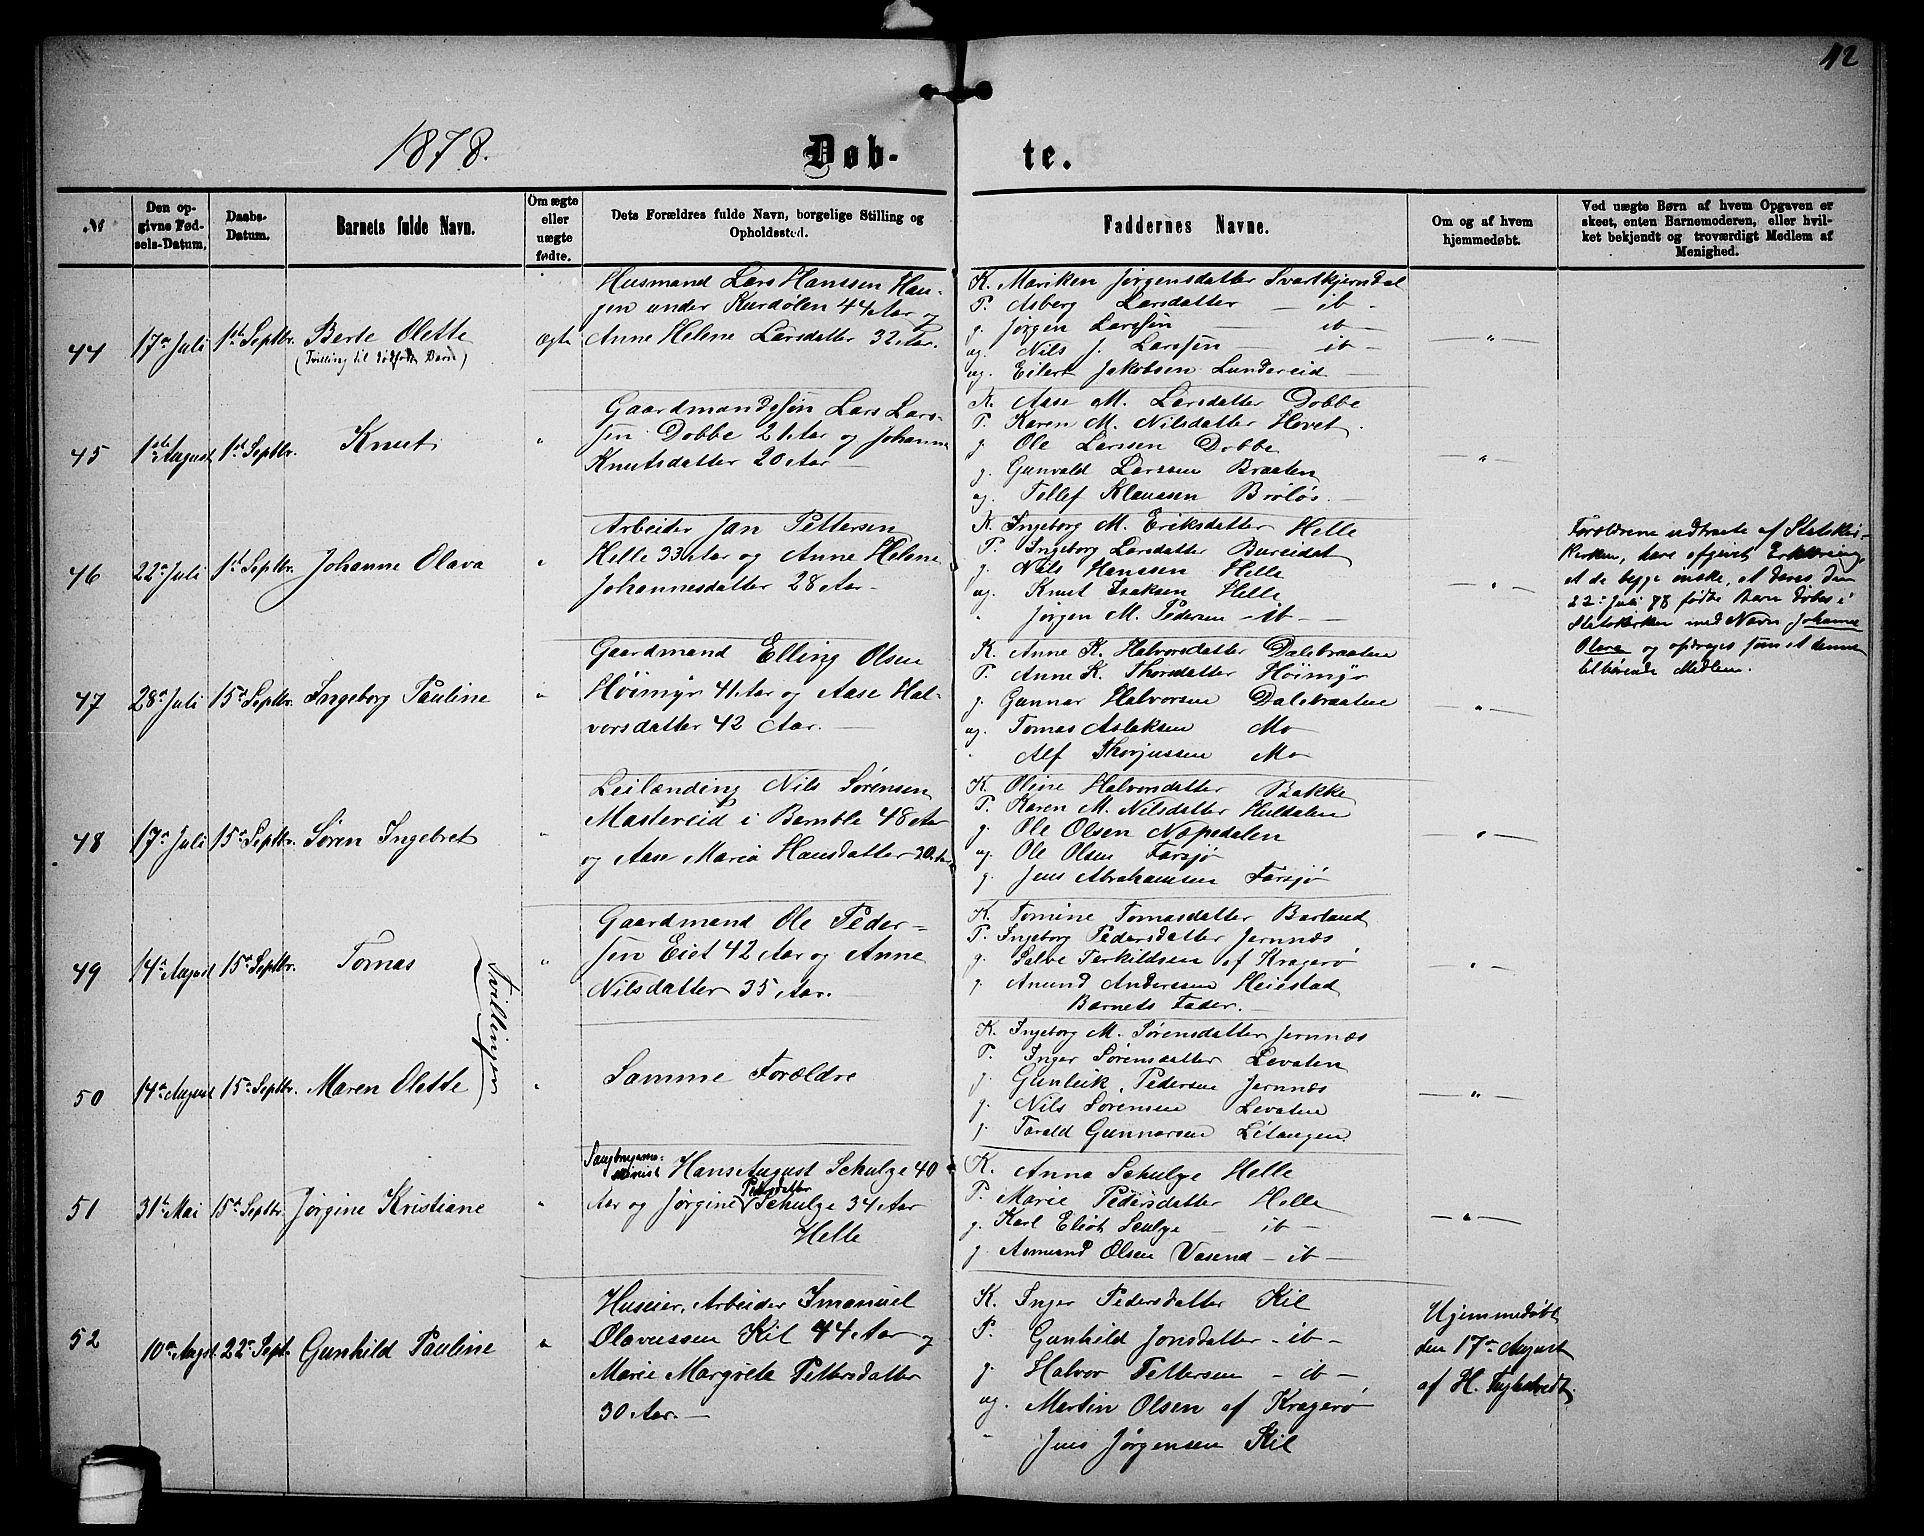 42
1878.
Døb-
te.
№
Den op-
givne Fød-
sels-Datum.
Daabs-
Datum.
Barnets fulde Navn.
Om ægte
eller
uægte
fødte.
Dets Forældres fulde Navn, borgelige Stilling og
Opholdssted.
Faddernes Navne.
Om og af hvem
hjemmedøbt.
Ved uægte Børn af hvem Opgaven er
skeet, enten Barnemoderen, eller hvil-
ket bekjendt og troværdigt Medlem af
Menighed.
44
17de Juli
1ste Septbr.
Berte Olette
(Tvilling til dødfødt Barn)
Ægte
Husmand Lars Hanssen Hau-
gen under Kurdølen 44 Aar og
Anne Helene Larsdatter 32 Aar.
K. Mariken Jørgensdatter Svartkjerndal
P. Asberg Larsdatter — ib —
g. Jørgen Larssøn — ib —
ug. Nils J. Larssøn — ib —
ug. Eilert Jakobsen Lundereid —
— " —
45
1ste August
1ste Septbr.
Knut
"
Gaardmandssøn Lars Lars-
sen Dobbe 21 Aar og Johanne
Knutsdatter 20 Aar —
K. Aase M. Larsdatter Dobbe
P. Karen M. Nilsdatter Hovet.
g. Ole Larsen Dobbe
g. Gunvald Larssen Braaten
ug. Tellef Klaussen Brøløs. —
— " —
46
22de Juli
1ste Septbr.
Johanne Olava
"
Arbeider Jan Pettersen
Helle 33 Aar og Anne Helene
Johannesdatter 28 Aar —
K. Ingeborg M. Eriksdatter Helle
P. Ingeborg Larsdatter Bureidet
g. Nils Hanssen Helle
ug. Knut Isaksen Helle
" Jørgen M. Pedersen — ib —
— " —
Forældrene udtraate af Statskir-
kirken, have afgivet Erklæring,
at de begge ønske, at deres den
22de Juli 78 fødte Barn døbes i
Statskirken med Navn Johanne
Olava og opdrages som et denne
tilhørende Medlem.
47
28de Juli
15de Septbr.
Ingeborg Pauline
"
Gaardmand Elling Olsen
Høimyr 41 Aar og Aase Hal-
vorsdatter 42 Aar. —
K. Anne K. Halvorsdatter Dalebraatene
P. Anne K. Thorsdatter Høimyr
g. Gunnar Halvorsen Dalebraatene
ug. Tomas Aslaksen Mo
" Alf Thorjussen Mo
— " —
48
17de Juli
15de Septbr.
Søren Ingebret
"
Leilænding Nils Sørensen
Mastereid i Bamble 48 Aar
og Aase Maria Hansdatter 30 Aar
K. Oline Halvorsdatter Bakke
P. Karen M. Nilsdatter Huldalen
g. Ole Olsen Næpedalen
ug. Ole Olsen Farsjø
g. Jens Abrahamsen Farsjø
— " —
49
14de August
15de Septbr.
Tomas
Tvillinger
"
Gaardmand Ole Peder-
sen Eiet 42 Aar og Anne
Nilsdatter 35 Aar. —
K. Tomine Tomasdatter Barland
P. Ingeborg Pedersdatter Jernnæs
g. Salve Terkildsen af Kragerø
g. Amund Anderssen Heiestad
Barnets Fader. —
— " —
50
14de August
15de Septbr.
Maren Olette
"
Samme Forældre
K. Ingeborg M. Sørensdatter Jernnæs
P. Inger Sørensdatter Levaten
g. Gunleik Pedersen Jernnæs
g. Nils Sørensen Levaten
g. Tarald Gunnarsen Litangen
— " —
51
31te Mai
15de Septbr.
Jørgine Kristiane
"
Hans August Schulze 40
Aar og Jørgine Pedersdatter Schulze 34 Aar
Helle
K. Anna Schulze Helle
P. Marie Pedersdatter Helle
g. Karl Eliot Sculze — ib —
g. Asmund Olsen Vasend — ib —
— " —
52
10de Augst.
22de Sept.
Gunhild Pauline
"
Huseier, Arbeider Imanuel
Olavessen Kil 44 Aar og
Marie Margrete Pettersdatter
30 Aar. —
K. Inger Pedersdatter Kil
P. Gunhild Jonsdatter — ib —
g. Halvor Pettersen — ib —
ug. Martin Olsen af Kragerø
" Jens Jørgensen Kil
Hjemmedøbt
den 17de August
af H.